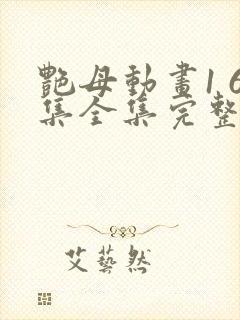 艷母動畫1 6
集全集完整
艾藝然